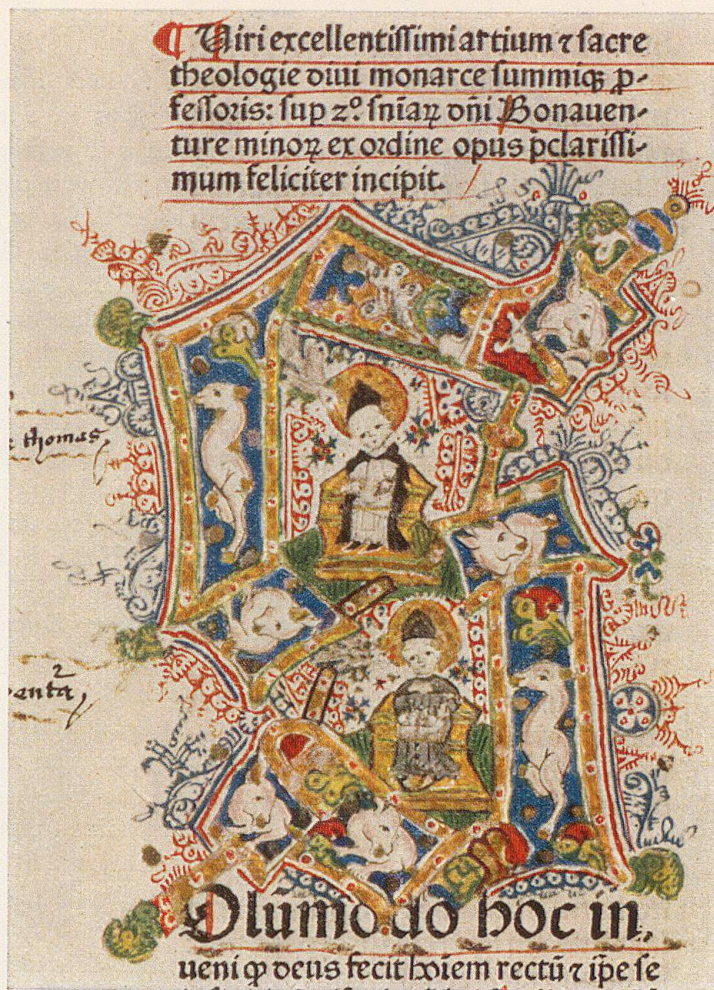 Uiri excellentissimi artium ⁊ sacre
theologie diui monarce summiq̃ p̱-
fessoris: sup 2º. sniaꝝ dñi Bonauen-
ture minoꝝ ex ordine opus p̄clarissi-
mum feliciter incipit.
thomas
Solumodo hoc in,
ueni ꝙ deus fecit hoiem rectū ⁊ ip̄e se